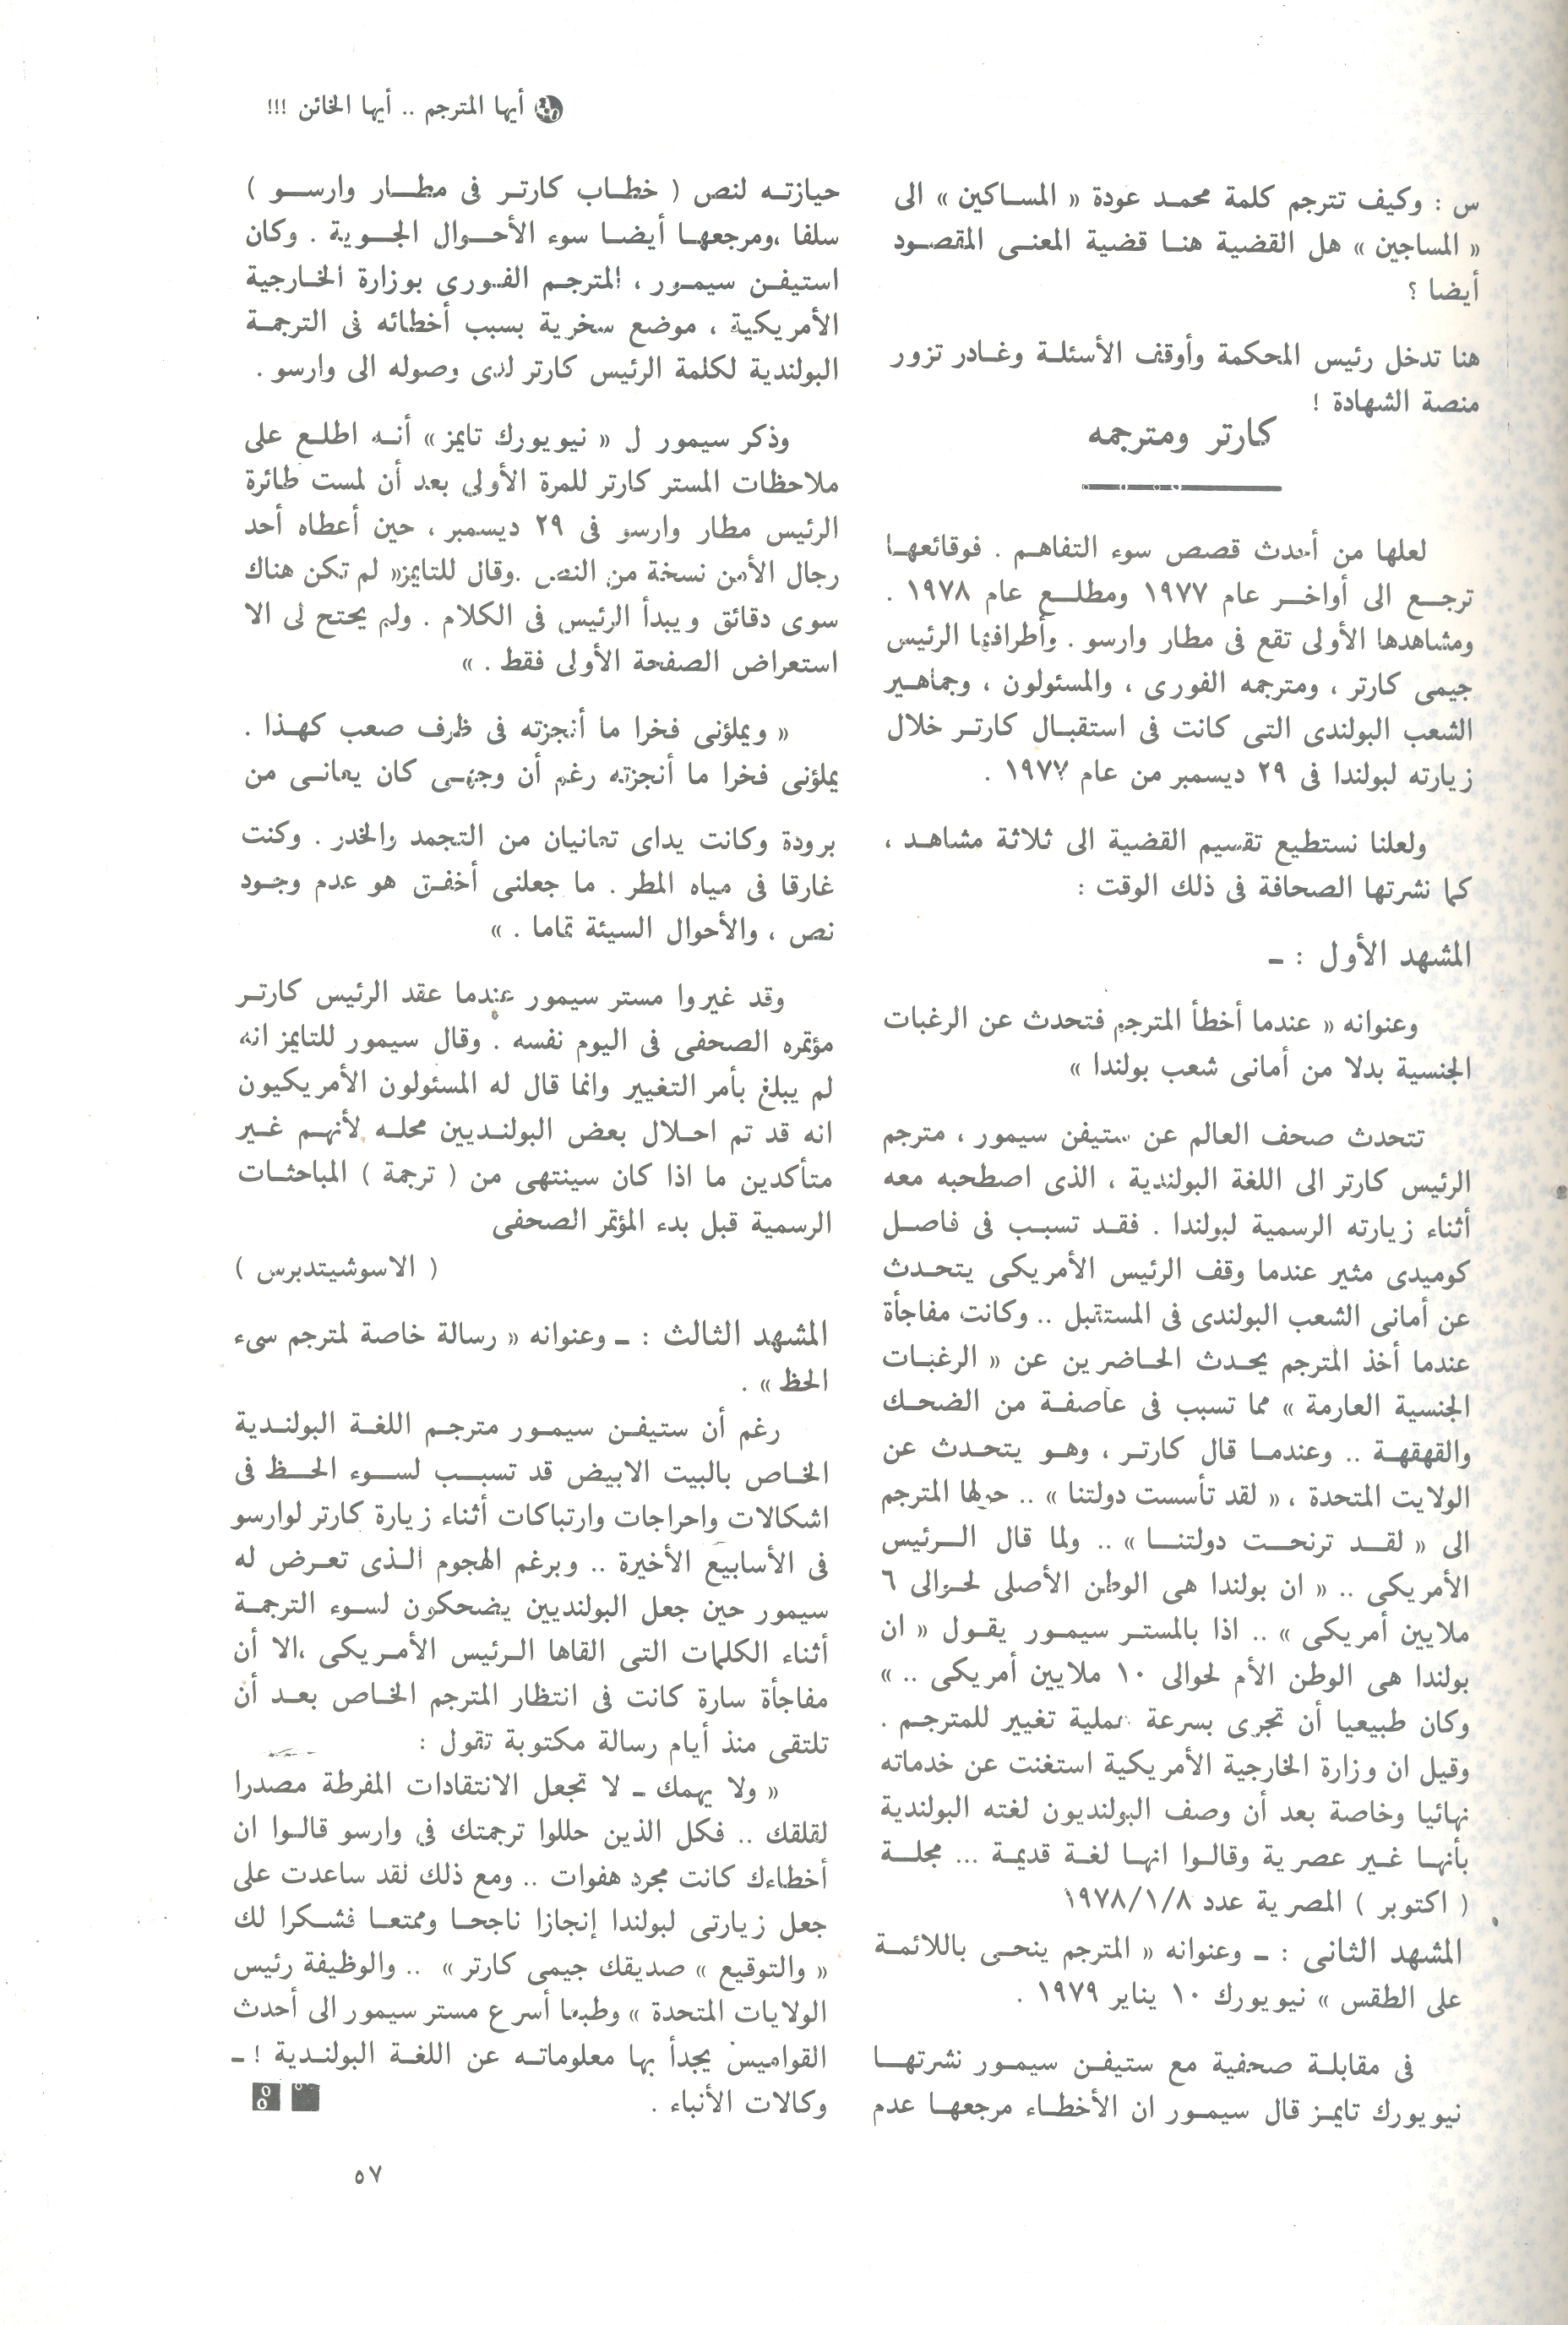 أيها المترجم .. أيها الخائن !!!
س : وكيف تترجم كلمة محمد عودة « المساكين » الى
« المساجين » هل القضية هنا قضية المعنى المقصود
أيضا ؟
هنا تدخل رئيس المحكمة وأوقف الأسئلة وغادر تزور
منصة الشهادة !
كارتر ومترجمه
لعلها من أحدث قصص سوء التفاهم . فوقائعها
ترجع الى أواخر عام ١٩٧٧ ومطلع عام ١٩٧٨ .
ومشاهدها الأولى تقع فى مطار وارسو . وأطرافها الرئيس
جيمى كارتر ، ومترجمه الفورى ، والمسئولون ، وجماهير
الشعب البولندى التى كانت فى استقبال كارتر خلال
زيارته لبولندا فى ٢٩ ديسمبر من عام ١٩٧٧ .
ولعلنا نستطيع تقسيم القضية الى ثلاثة مشاهد ،
كما نشرتها الصحافة فى ذلك الوقت :
المشهد الأول : ـ
وعنوانه « عندما أخطأ المترجم فتحدث عن الرغبات
الجنسية بدلا من أمانى شعب بولندا »
تتحدث صحف العالم عن ستيفن سيمور ، مترجم
الرئيس كارتر الى اللغة البولندية ، الذى اصطحبه معه
أثناء زيارته الرسمية لبولندا . فقد تسبب فى فاصل
كوميدى مثير عندما وقف الرئيس الأمريكى يتحدث
عن أمانى الشعب البولندى فى المستقبل .. وكانت مفاجأة
عندما أخذ المترجم يحدث الحاضرين عن « الرغبات
الجنسية العارمة » مما تسبب فى عاصفة من الضحك
والقهقهة .. وعندما قال كارتر ، وهو يتحدث عن
الولايت المتحدة ، « لقد تأسست دولتنا » .. حولها المترجم
الى « لقد ترنحت دولتنا » .. ولما قال الرئيس
الأمريكى .. « ان بولندا هى الوطن الأصلى لحوالى ٦
ملايين أمريكى » .. اذا بالمستر سيمور يقول « ان
بولندا هى الوطن الأم لحوالى ١٠ ملايين أمريكى .. »
وكان طبيعيا أن تجرى بسرعة عملية تغيير للمترجم .
وقيل ان وزارة الخارجية الأمريكية استغنت عن خدماته
نهائيا وخاصة بعد أن وصف البولنديون لغته البولندية
بأنها غير عصرية وقالوا انها لغة قديمة ... مجلة
( اكتوبر ) المصرية عدد ١٩٧٨/١/٨
المشهد الثانى : ـ وعنوانه « المترجم ينحى باللائمة
على الطقس » نيويورك ١٠ يناير ١٩٧٩ .
فى مقابلة صحفية مع ستيفن سيمور نشرتها
نيويورك تايمز قال سيمور ان الأخطاء مرجعها عدم
حيازته لنص ( خطاب كارتر فى مطار وارسو )
سلفا ،ومرجعها أيضا سوء الأحوال الجوية . وكان
استيفن سيمور ، المترجم الفورى بوزارة الخارجية
الأمريكية ، موضع سخرية بسبب أخطائه فى الترجمة
البولندية لكلمة الرئيس كارتر لدى وصوله الى وارسو .
وذكر سيمور ل « نيويورك تايمز » أنه اطلع على
ملاحظات المستر كارتر للمرة الأولى بعد أن لمست طائرة
الرئيس مطار وارسو فى ٢٩ ديسمبر ، حين أعطاه أحد
رجال الأمن نسخة من النص .وقال للتايمز« لم تكن هناك
سوى دقائق ويبدأ الرئيس فى الكلام . ولم يحتح لى الا
استعراض الصفحة الأولى فقط . »
« ويملؤنى فخرا ما أنجزته فى ظرف صعب كهذا .
يملؤنى فخرا ما أنجزته رغم أن وجهى كان يعانى من
برودة وكانت يداى تعانيان من التجمد والخدر . وكنت
غارقا فى مياه المطر . ما جعلنى أخفق هو عدم وجود
نص ، والأحوال السيئة تماما . »
وقد غيروا مستر سيمور عندما عقد الرئيس كارتر
مؤتمره الصحفى فى اليوم نفسه . وقال سيمور للتايمز انه
لم يبلغ بأمر التغيير وانما قال له المسئولون الأمريكيون
انه قد تم احلال بعض البولنديين محله لأنهم غير
متأكدين ما اذا كان سينتهى من ( ترجمة ) المباحثات
الرسمية قبل بدء المؤتمر الصحفى
( الاسوشيتدبرس )
المشهد الثالث : ـ وعنوانه « رسالة خاصة لمترجم سىء
الحظ » .
رغم أن ستيفن سيمور مترجم اللغة البولندية
الخاص بالبيت الابيض قد تسبب لسوء الحظ فى
اشكالات واحراجات وارتباكات أثناء زيارة كارتر لوارسو
فى الأسابيع الأخيرة .. وبرغم الهجوم الذى تعرض له
سيمور حين جعل البولنديين يضحكون لسوء الترجمة
أثناء الكلمات التى القاها الرئيس الأمريكى ،الا أن
مفاجأة سارة كانت فى انتظار المترجم الخاص بعد أن
تلتقى منذ أيام رسالة مكتوبة تقول :
« ولا يهمك ـ لا تجعل الانتقادات المفرطة مصدرا
لقلقك .. فكل الذين حللوا ترجمتك فى وارسو قالوا ان
أخطاءك كانت مجرد هفوات .. ومع ذلك لقد ساعدت على
جعل زيارتى لبولندا إنجازا ناجحا وممتعا فشكرا لك
« والتوقيع » صديقك جيمى كارتر » .. والوظيفة رئيس
الولايات المتحدة » وطبعا أسرع مستر سيمور الى أحدث
القواميس يجدأ بها معلوماته عن اللغة البولندية ! ـ
وكالات الأنباء .
٥٧